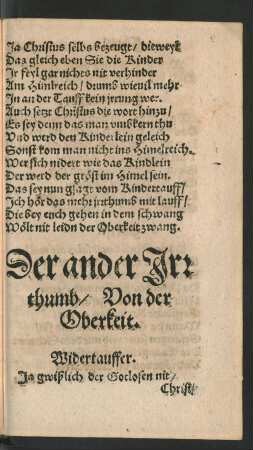 Ja Christus selbs bezeugt/ dieweyl
Das gleich eben Sie die Kinder
Ir feyl gar nichts nit verhinder
Am Himlreich/ drumb wieuil mehr
In an der Tauff kein jrrung wer.
Auch setzt Christus die wort hinzu/
Es sey denn das man vmbkern thu
Vnd werd den Kinderlein geleich
Sonst kom man nicht ins Himelreich.
Wer sich nidert wie das Kindlein
Der werd der gröst im Himel sein.
Das sey nun gsagt vom Kindertauff/
Ich hör das mehr jrthumb mit lauff/
Die bey euch gehen in dem schwang
Wölt nit leidn der Oberkeit zwang.
Der ander Irr
thumb/ Von der
Oberkeit.
Widertauffer.
Ja gwißlich der Gotlosen nit/
Christ/